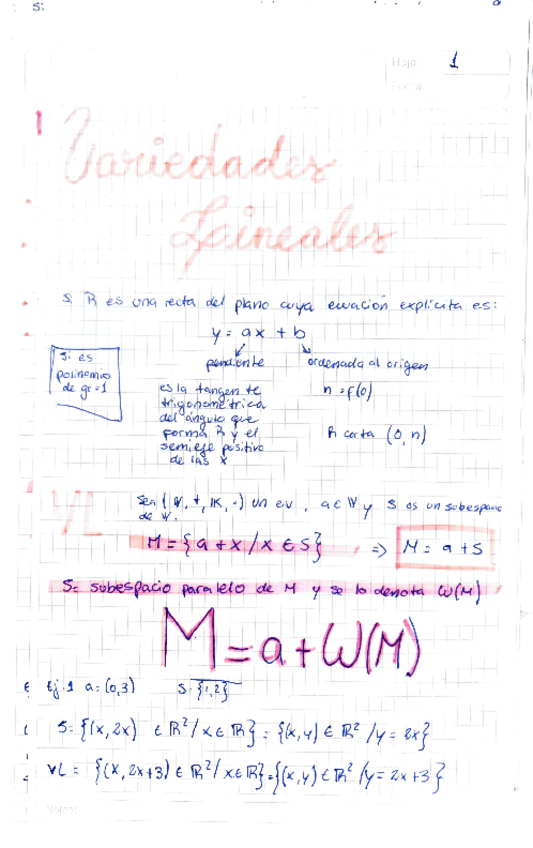 Hoja 1
Variedades
Lineales
Si R es una recta del plano cuya ecuación explícita es:
y = ax + b
Si es
polinomio
de gr = 1
pendiente
es la tangente
trigonométrica
del ángulo que
forma R y el
semieje positivo
de las x
ordenada al origen
n = f(0)
R corta (0, n)
VL
Sea (V, +, K, ·) un ev, a ∈ V y S es un subespacio
de V.
M = {a + x / x ∈ S} => M = a + S
S = subespacio paralelo de M y se lo denota W(M)
M = a + W(M)
Ej. 1 a = (0,3) S = {1,2}
S = {(x, 2x) ∈ R² / x ∈ R} = {(x, y) ∈ R² / y = 2x}
VL = {(x, 2x+3) ∈ R² / x ∈ R} = {(x, y) ∈ R² / y = 2x + 3}